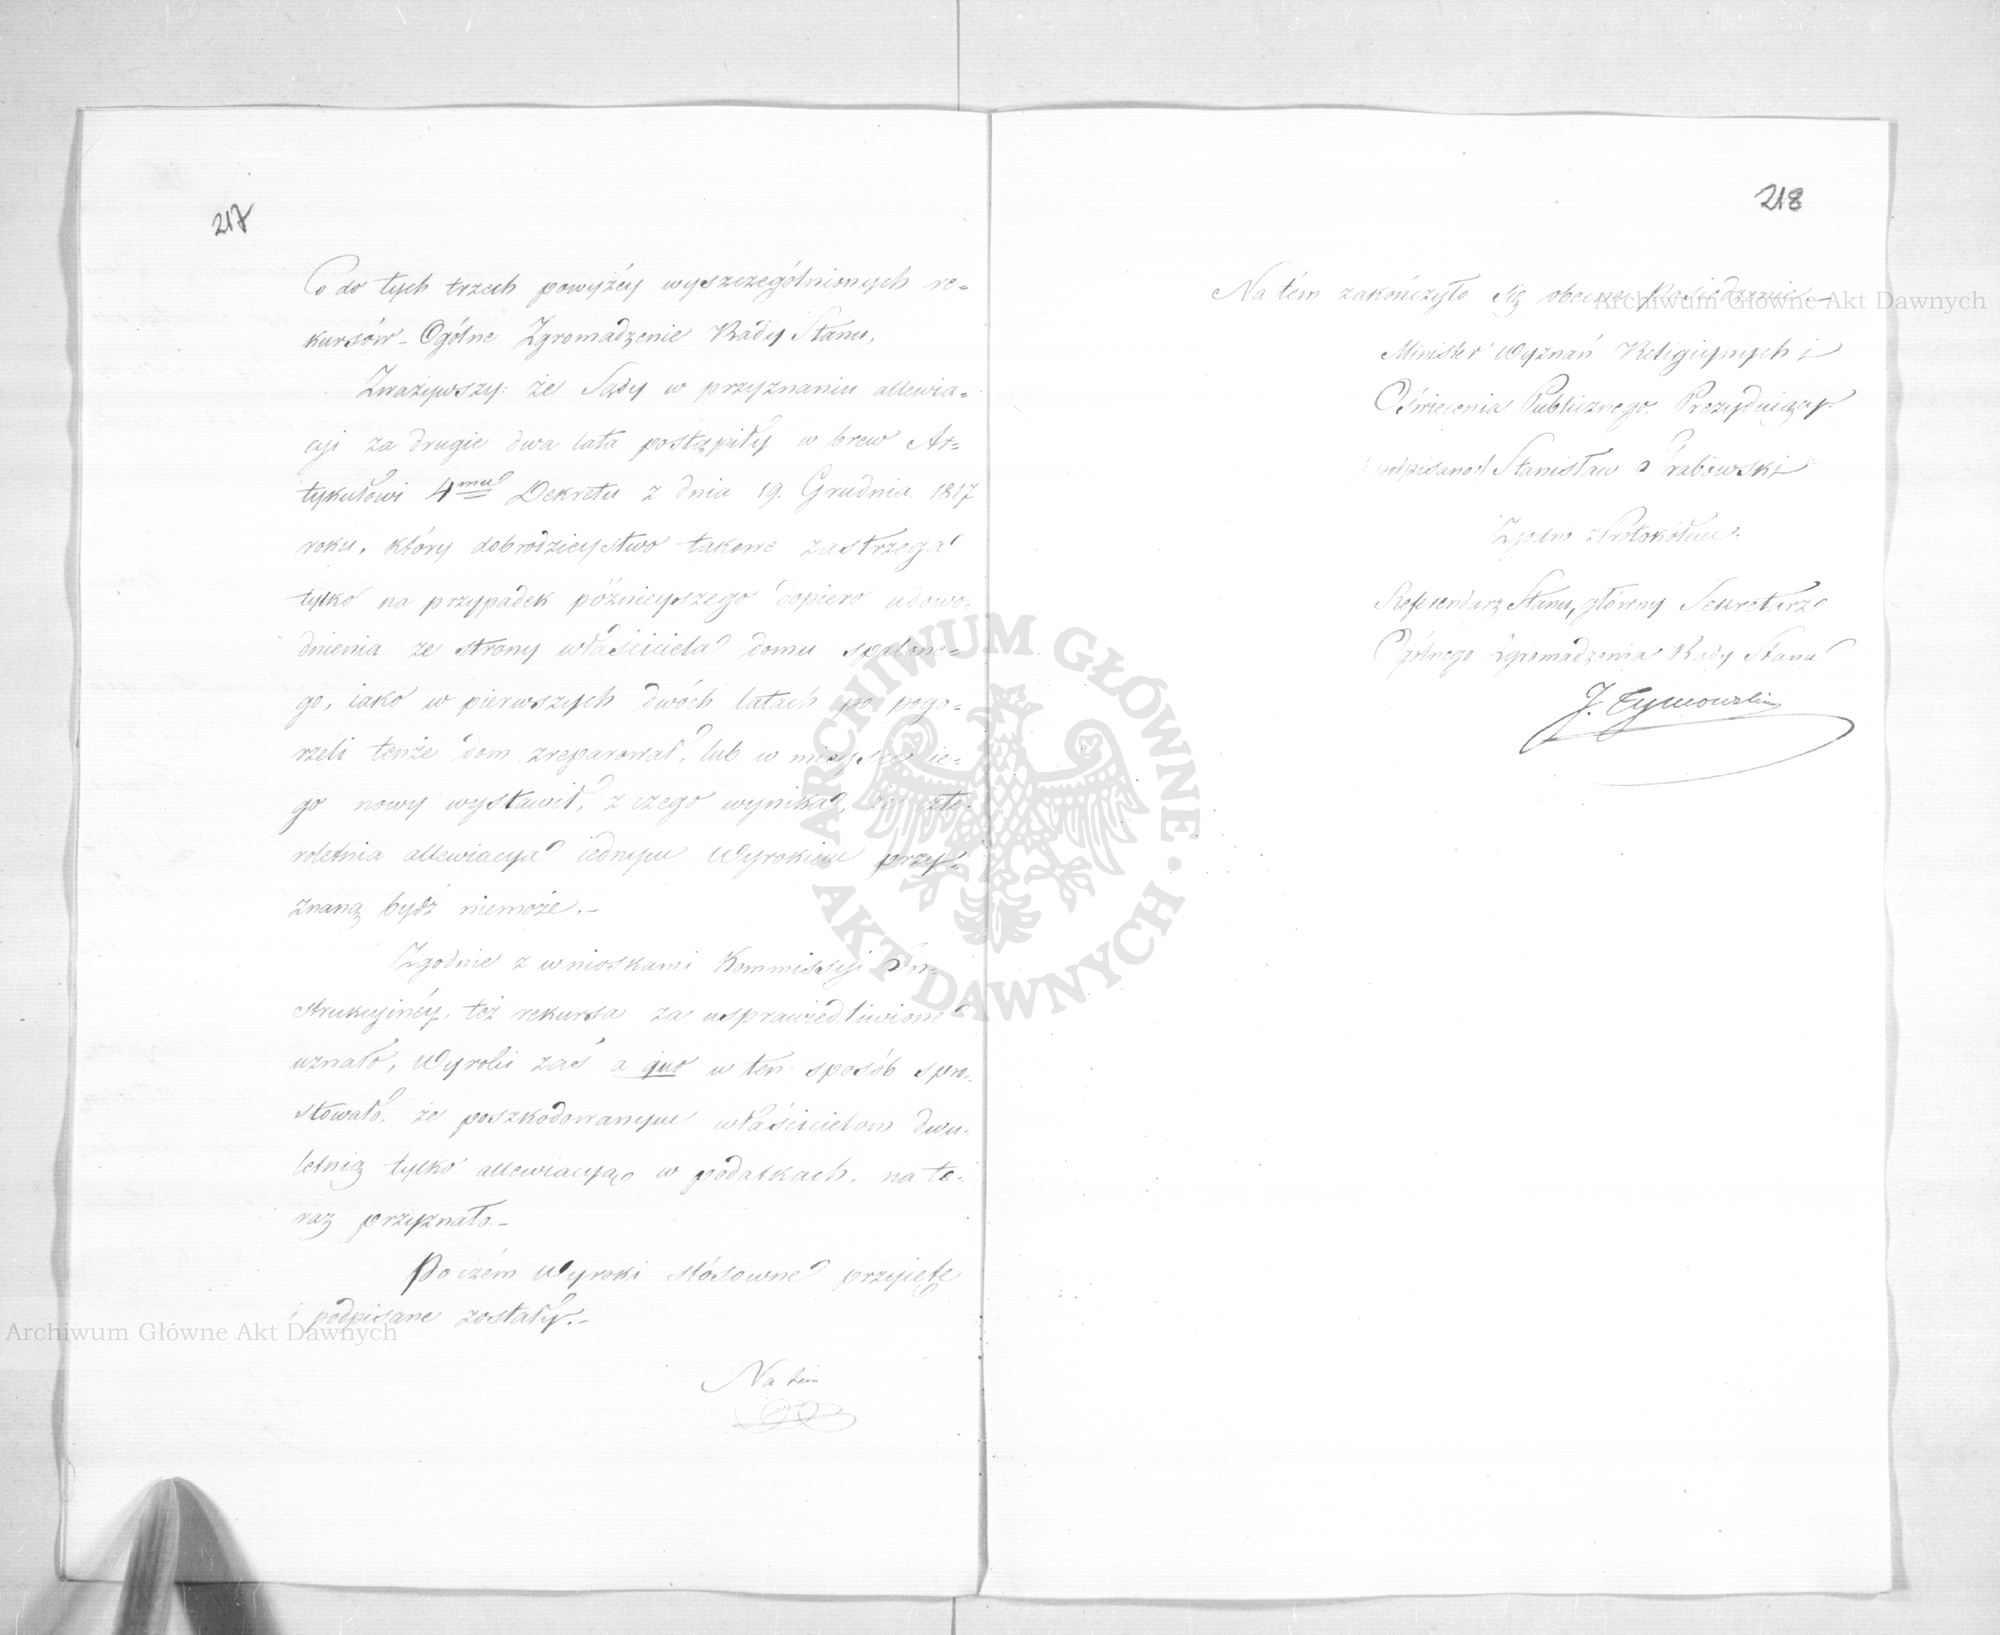 217
Co do tych trzech powyżéy wyszczególnionych re-
kursów - Ogólne Zgromadzenie Rady Stanu,
Zważywszy: że Sądy w przyznaniu allewia-
cyi za drugie dwa lata postąpiły w brew Ar-
tykułowi 4mu Dekretu z dnia 19. Grudnia 1817
roku, który dobrodzieystwo takowe zastrzega
tylko na przypadek późnieyszego dopiero udowo-
dnienia ze strony właściciela domu spalone-
go, iako w pierwszych dwóch latach po pogo-
rzeli tenże dom zreparował, lub w mieysce ie-
go nowy wystawił, z czego wynika, że czte-
roletnia allewiacya iednym Wyrokiem przy-
znaną bydź niemoże. -
Zgodnie z wnioskami Kommissyi In-
strukcyinéy, też rekursa za usprawiedliwione
uznało, Wyroki zaś a quo w ten sposób spro-
stowało, że poszkodowanym właścicielom dwu-
letnią tylko allewiacyą w podatkach, na te-
raz przyznało. -
Po czém Wyroki stósowne przyięte
i podpisane zostały. -
Na tém
218
Na tém zakończyło się obecne Posiedzenie -
Minister Wyznań Religiynych i
Oświecenia Publicznego, Prezyduiący
(podpisano) Stanisław Grabowski
Zgodno z Protokółem.
Referendarz Stanu, główny Sekretarz
Ogólnego Zgromadzenia Rady Stanu
J. Tymowski
Archiwum Główne Akt Dawnych
Archiwum Główne Akt Dawnych
ARCHIWUM GŁÓWNE · AKT DAWNYCH ·